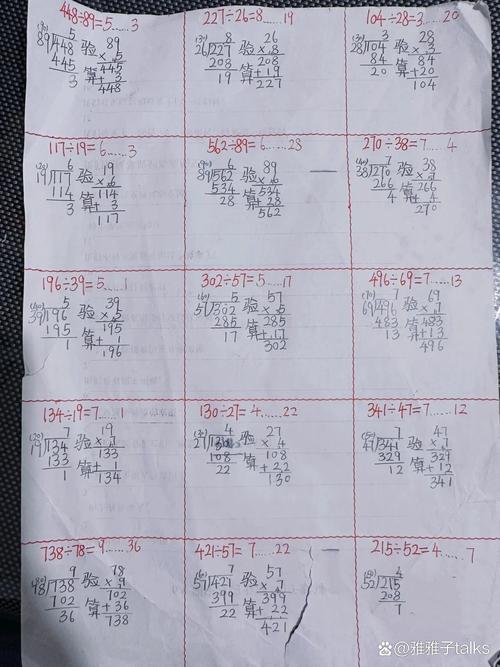 448÷89=5……3
227÷26=8……19
104÷28=3……20
(90) 5
89√448 验 89
445 × 5
3 算 445
+ 3
448
(30) 8
26√227 验 26
208 × 8
19 算 208
+19
227
(30) 3
28√104 验 28
84 × 3
20 算 84
+20
104
117÷19=6……3
562÷89=6……28
270÷38=7……4
(20) 6
19√117 验 19
114 × 6
3 算 114
+ 3
117
(90) 6
89√562 验 89
534 × 6
28 算 534
+ 28
562
(40) 7
38√270 验 38
266 × 7
4 算 266
+ 4
270
196÷39=5……1
302÷57=5……17
496÷69=7……13
(40) 5
39√196 验 39
195 × 5
1 算 195
+ 1
196
(60) 5
57√302 验 57
285 × 5
17 算 285
+17
302
(70) 7
69√496 验 69
483 × 7
13 算 483
+13
496
134÷19=7……1
130÷27=4……22
341÷47=7……12
(20) 7
19√134 验 19
133 × 7
1 算 133
+ 1
134
(30) 4
27√130 验 27
108 × 4
22 算 108
+22
130
(50) 7
47√341 验 47
329 × 7
12 算 329
+12
341
738÷78=9……36
421÷57=7……22
215÷52=4……7
(80) 9
78√738 验 78
702 × 9
36 算 702
+36
738
(60) 7
57√421 验 57
399 × 7
22 算 399
+22
421
(50) 4
52√215
208
7
@雅雅子talks